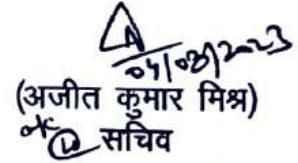 04/03/2023
(अजीत कुमार मिश्र)
सचिव